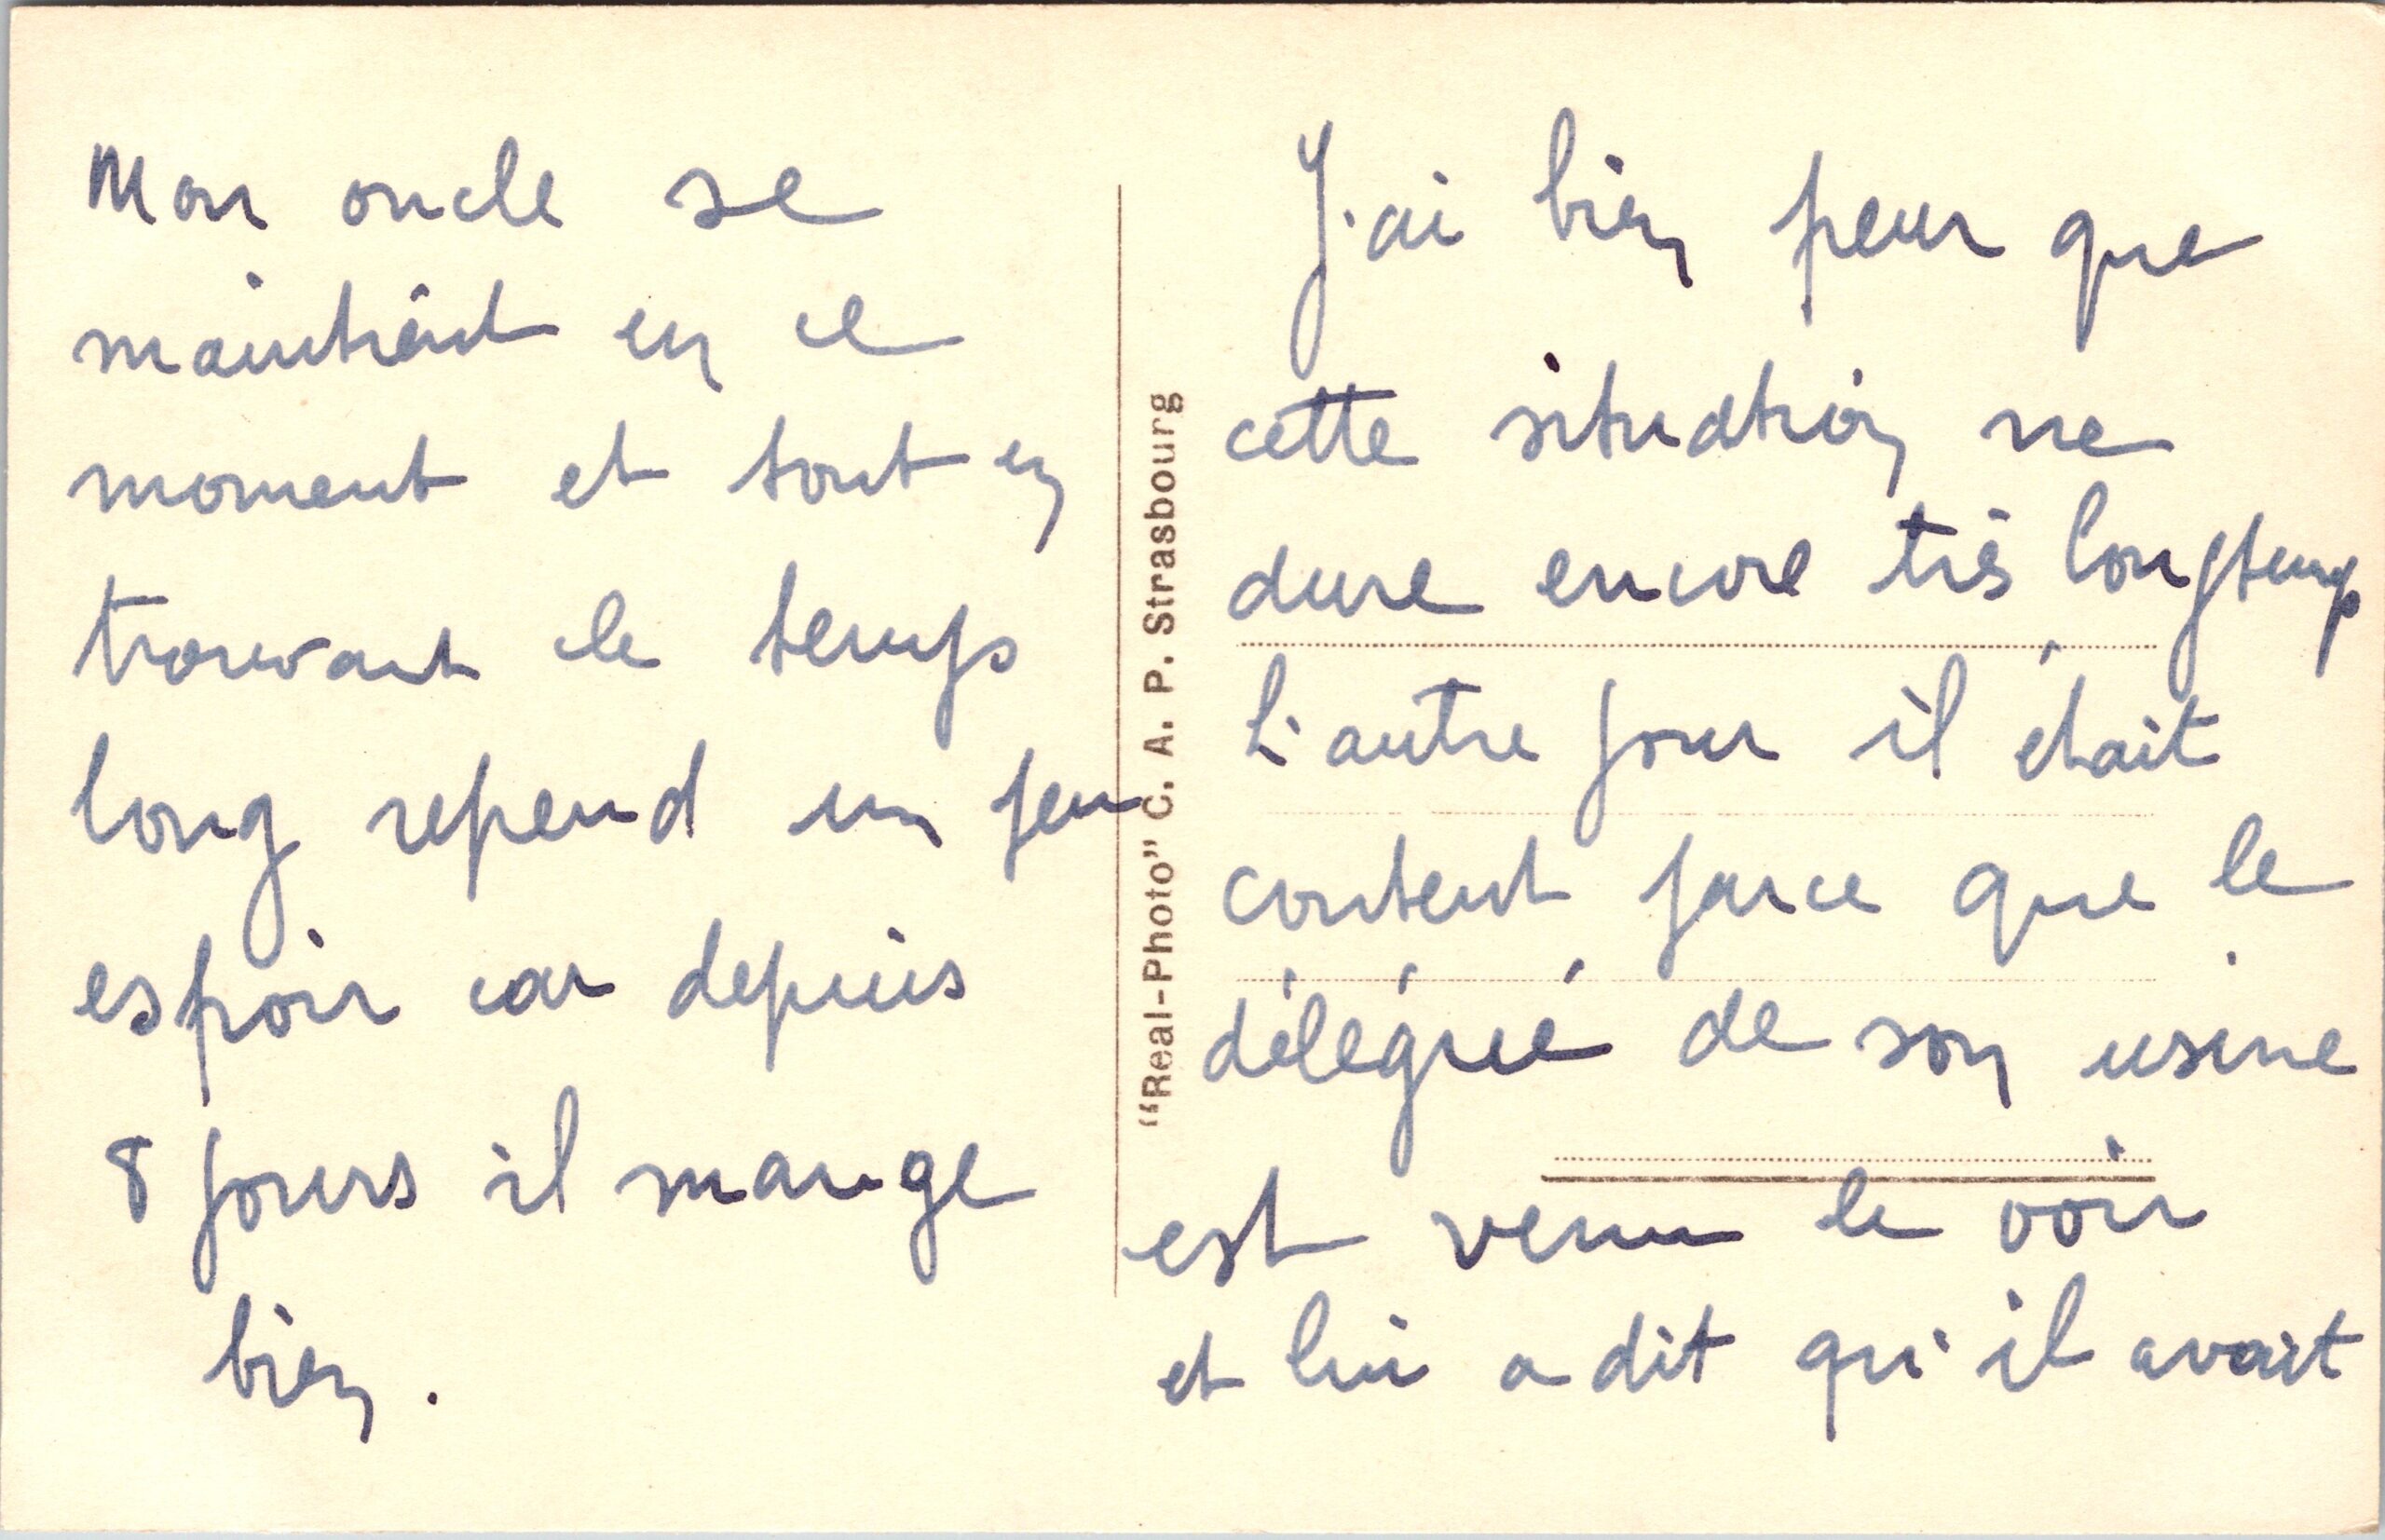 Mon oncle se
maintient en ce
moment et tout en
trouvant le temps
long repend un peu
espoir car depuis
8 jours il mange
bien.
"Real-Photo" C. A. P. Strasbourg
J'ai bien peur que
cette situation ne
dure encore très longtemps
L'autre jour il était
content parce que le
délégué de son usine
est venu le voir
et lui a dit qu'il avait